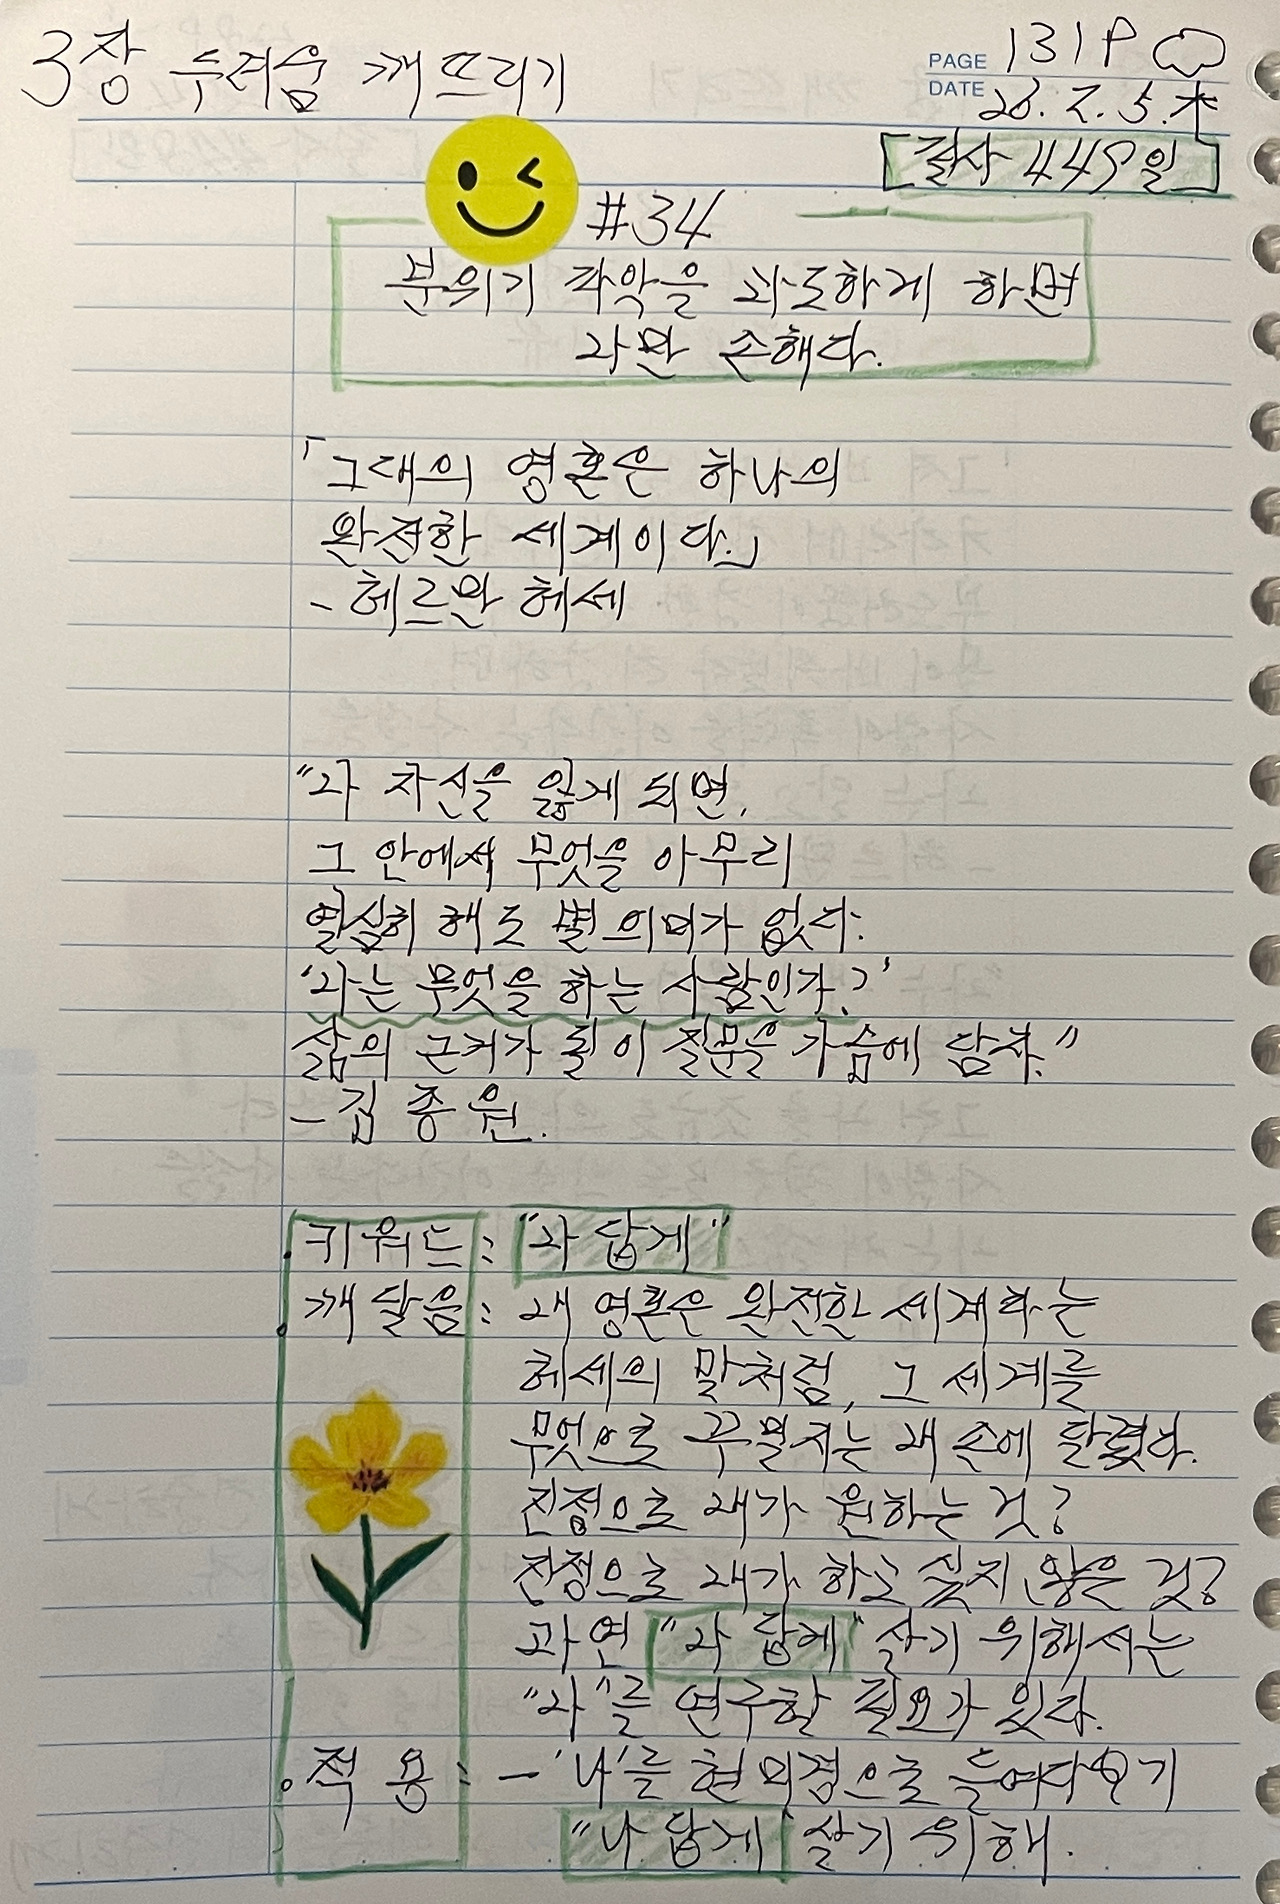 3장 두려움 깨뜨리기
PAGE 131P
DATE 26.2.5.木
필사 449일
#34
분위기 파악을 과도하게 하면
나만 손해다.
「그대의 영혼은 하나의
완전한 세계이다.」
- 헤르만 헤세
"나 자신을 잃게 되면,
그 안에서 무엇을 아무리
열심히 해도 별 의미가 없다.
'나는 무엇을 하는 사람인가?'
삶의 근거가 될 이 질문을 가슴에 담자."
- 김종원.
키워드 : "나 답게"
깨달음 : 내 영혼은 완전한 세계라는
헤세의 말처럼, 그 세계를
무엇으로 꾸밀지는 내 손에 달렸다.
진정으로 내가 원하는 것?
진정으로 내가 하고 싶지 않은 것?
과연 "나 답게" 살기 위해서는
"나"를 연구할 필요가 있다.
적용 : - '나'를 현미경으로 들여다보기
"나 답게" 살기 위해.